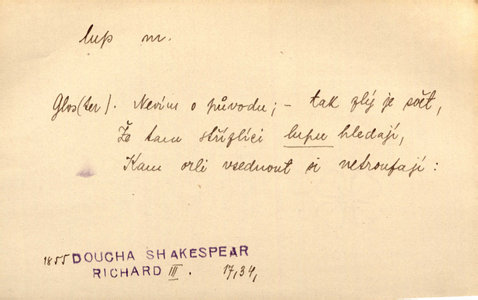 lup m.
Glos(ter). Nevím o původu; – tak zlý je svět,
Že tam střízlíci lupu hledají,
Kam orli vsednout si netroufají:
1855 DOUCHA SHAKESPEAR
RICHARD III. 17,34,